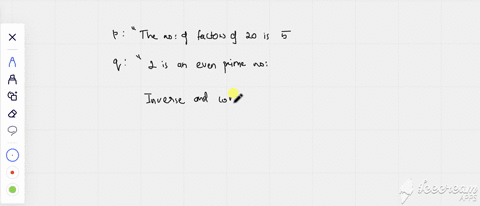 p: " The no: of factors of 20 is 5
q: " 2 is an even prime no:
Inverse and con
iScreen
APPS